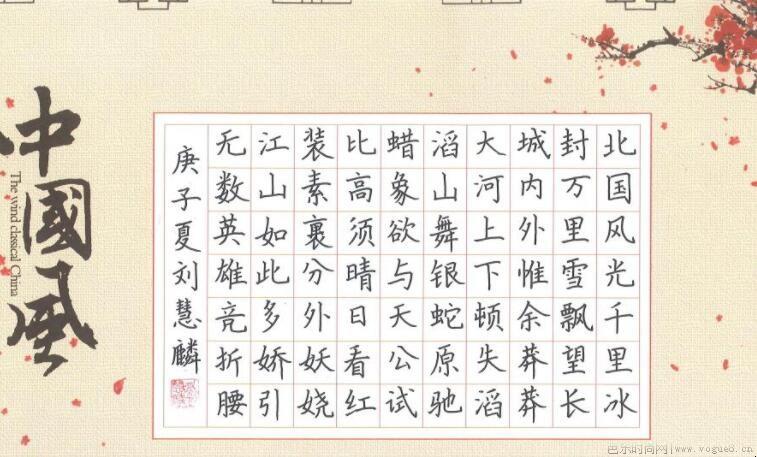 北国风光千里冰
封万里雪飘望长
城内外惟余莽莽
大河上下顿失滔
滔山舞银蛇原驰
蜡象欲与天公试
比高须晴日看红
装素裹分外妖娆
江山如此多娇引
无数英雄竞折腰
庚子夏刘慧麟
中國風
The wind classical China
时尚网|www.vogue8.cn